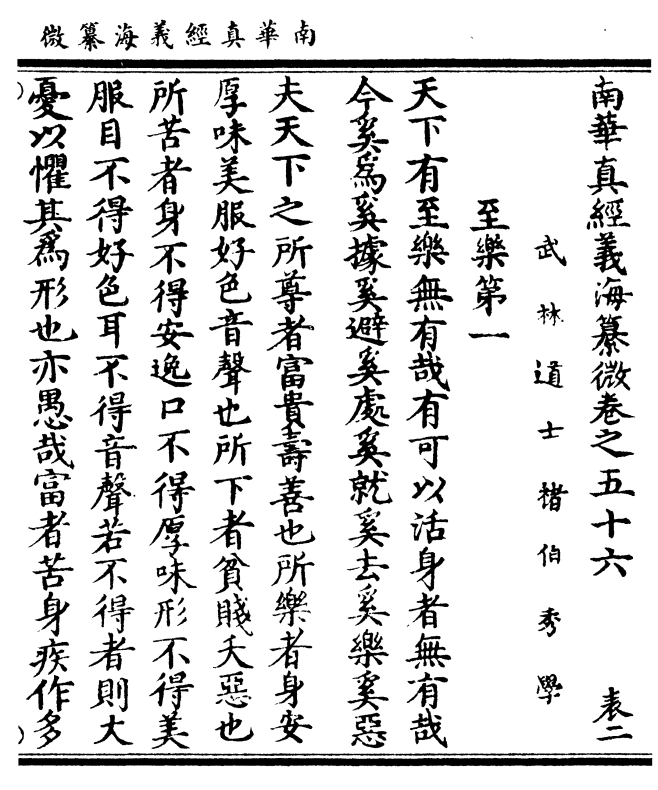 南華真經義海纂微
南華真經義海纂微卷之五十六 表二
武林道士褚伯秀學
至樂第一
天下有至樂無有哉有可以活身者無有哉
今奚為奚據奚避奚處奚就奚去奚樂奚惡
夫天下之所尊者富貴壽善也所樂者身安
厚味美服好色音聲也所下者貧賤夭惡也
所苦者身不得安逸口不得厚味形不得美
服目不得好色耳不得音聲若不得者則大
憂以懼其為形也亦愚哉富者苦身疾作多